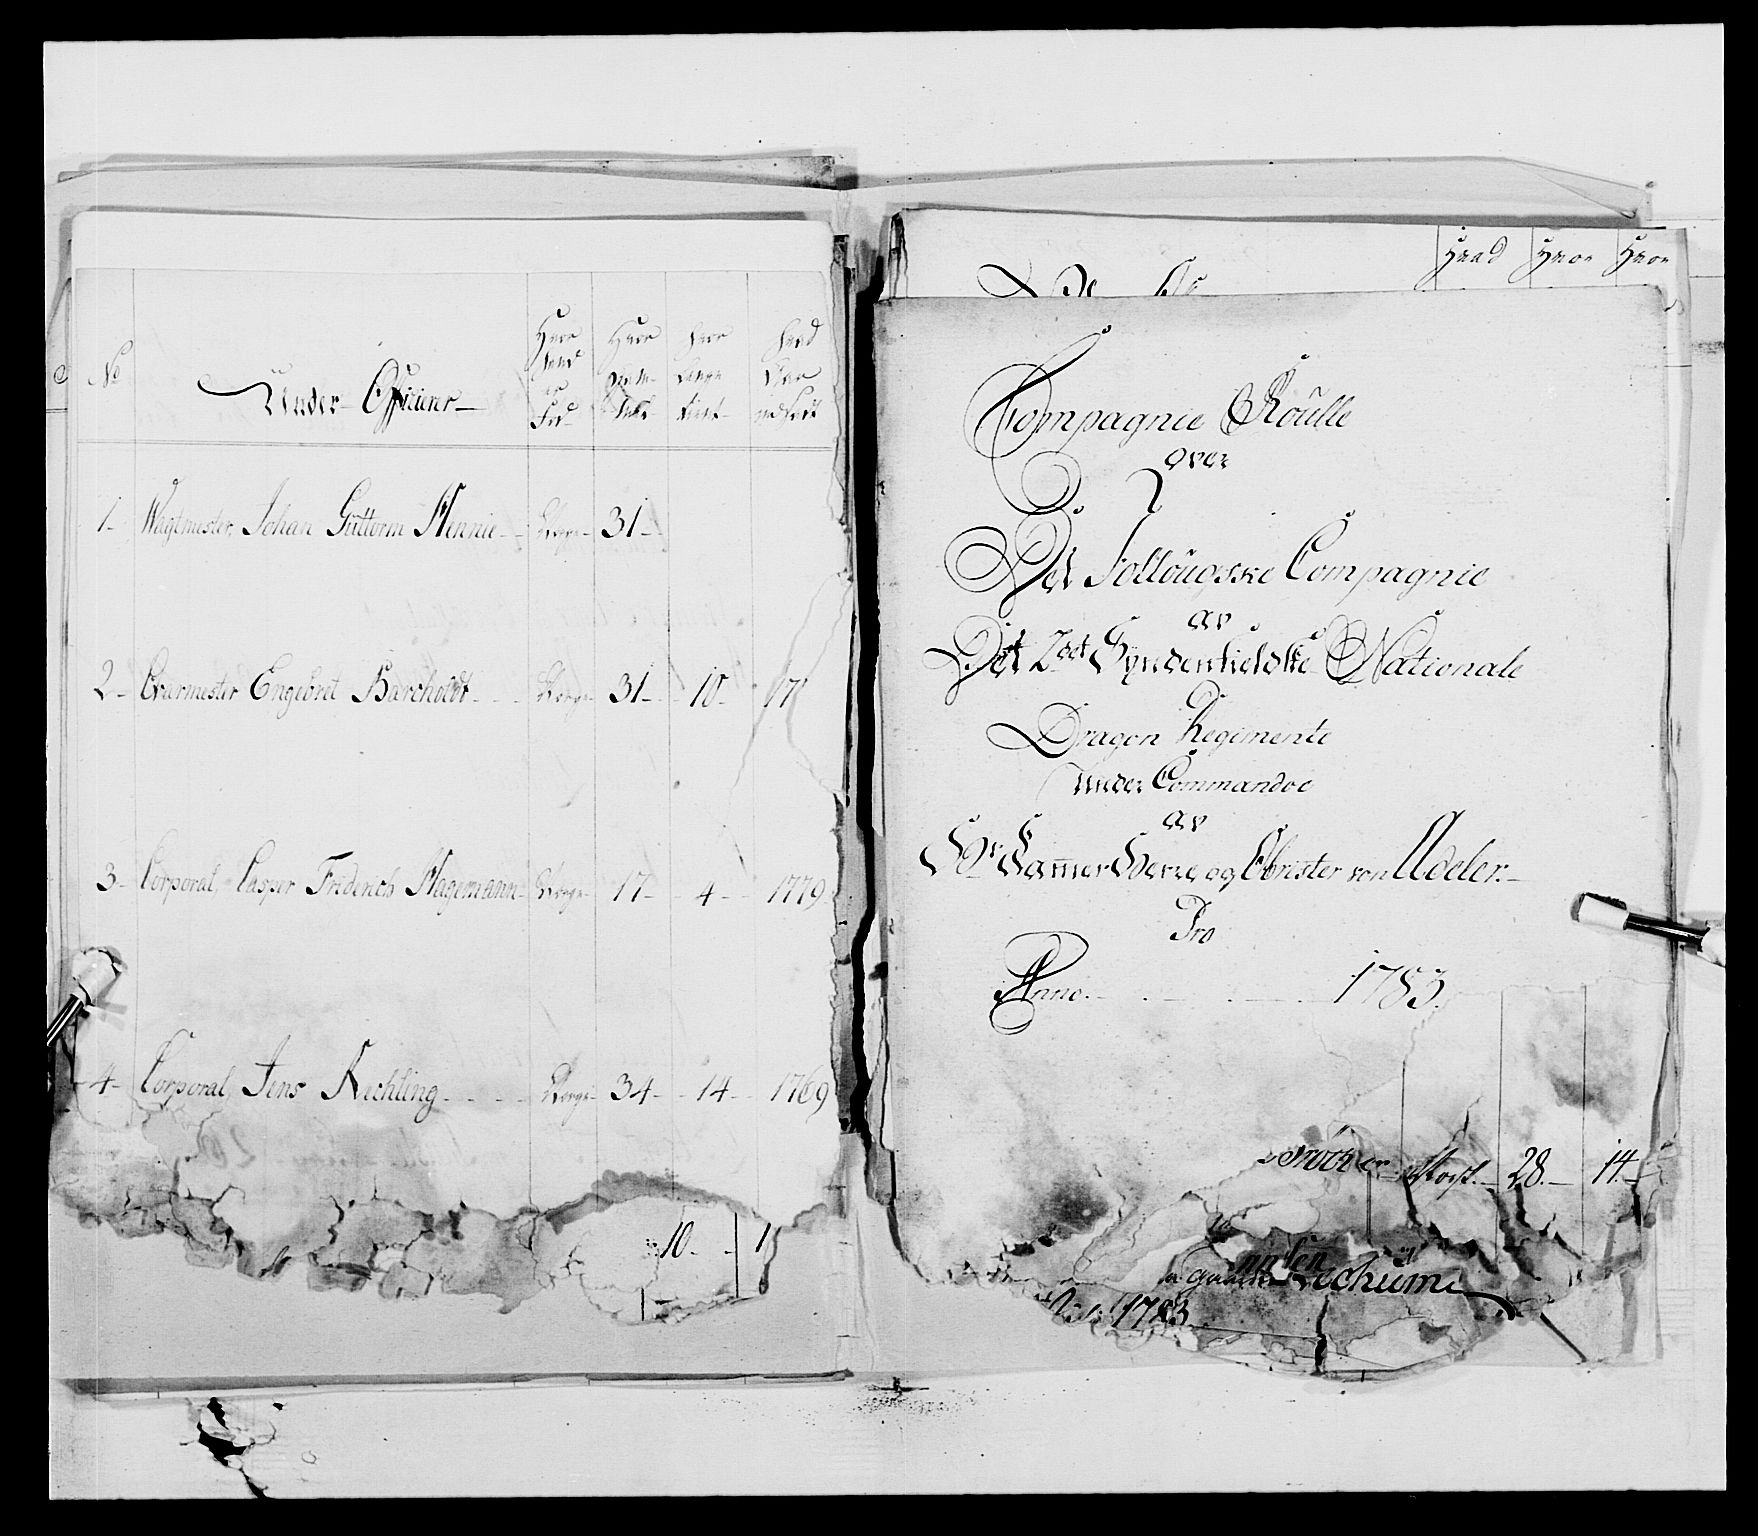 No
Under Officierer
Hvor
Fød
Hvor
Hvor
Lange
tient
hvad
1 Wagtmester, Johan Guttorm Mennie Norge 31
2 Qvarmester Engebret Barcholdt Norge 31 10 17
3 Corporal, Casper Friderich Hagemann Norge 17 4 1779
4 Corporal, Jens Kechling Norge 34 14 1769
10 1
Hvad Hvor Hvor
Compagnie Roulle
over
Det Follougske Compagnie
av
Det 2det Syndenfieldske Nationale
Dragon Regimente
Under Commandoe
av
Hr Kammer Herre og Obrister von Adeler
Pro
Anno 1783
Norge 28 14
1783